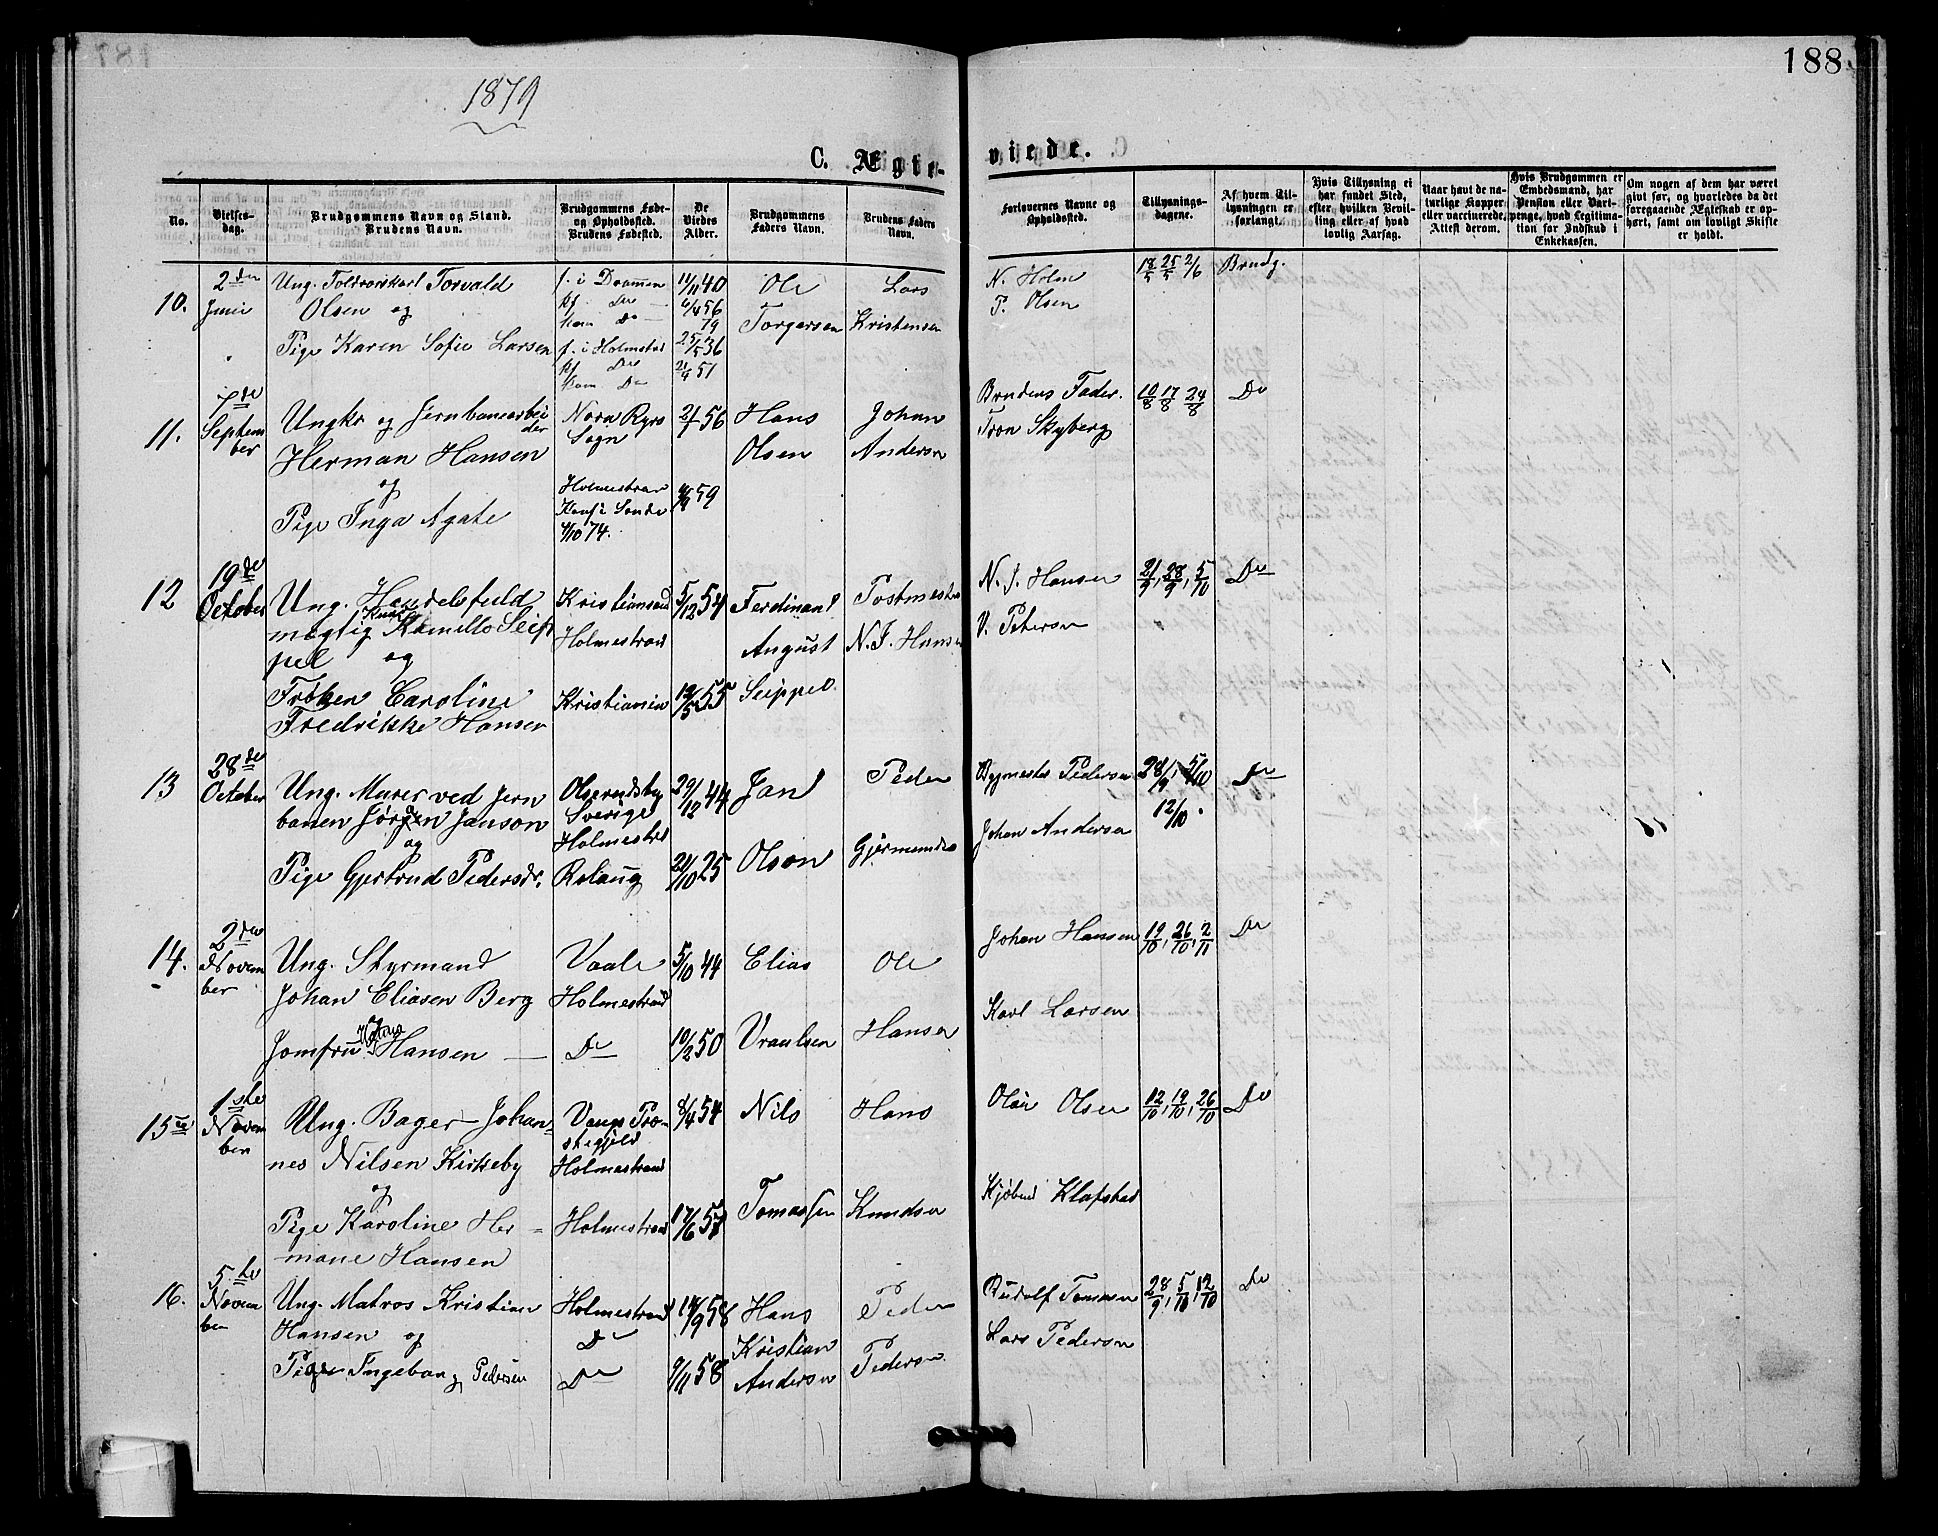 188
1879
C. Ægte-
viede.
No.
Vielses-
dag.
Brudgommens Navn og Stand.
Brudens Navn.
Brudgommens Føde-
og Opholdssted.
Brudens Fødested.
De
Viedes
Alder.
Brudgommens
Faders Navn.
Brudens Faders
Navn.
Forlovernes Navne og
Opholdssted.
Tillysnings-
dagene.
Af hvem Til-
lysningen er
forlangt.
Hvis Tillysning ei
har fundet Sted,
efter hvilken Bevil-
ling eller af hvad
lovlig Aarsag.
Naar havt de na-
turlige Kopper
eller vaccinerede,
Attest derom.
Hvis Brudgommen er
Embedsmand, har
Pension eller Vart-
penge, hvad Legitima-
tion for Indskud i
Enkekassen.
Om nogen af dem har været
givt før, og hvorledes da det
foregaaende Ægteskab er op-
hørt, samt om lovligt Skifte
er holdt.
10.
2den
Juni
Ung. Toldvorskarl Torvald
Olsen og
Pige Karen Sofie Larsen
f. i Drammen
kf do
kom do
f. i Holmestd
kf do
kom do
11/11 40
6/4 56
79
25/5 36
21/4 51
Ole
Torgersen
Lars
Kristensen
N. Holm
P. Olsen
18/5 25/5 2/6
Brudg.
11.
7de
Septem
ber
Ungkr og Jernbanearbei
der
Herman Hansen
og
Pige Inga Agate
Nora
Sogn
Holmestran
4/10 74.
2/1 56
59
Hans
Olsen
Johan
Anderson
Brudens Fader.
Tron Skyberg
10/8 17/8 24/8
Do
12
19de
October
Ung. Handelsfuld
mægtig Knut Kamillo Seip
pel og
Frøken Caroline
Fredrikke Hansen
Kristiansand
Holmestrand
Kristiania
5/12 54
12/5 55
Ferdinand
August
Seippel
Postmester
N. J. Hansen
N. J. Hansen
V. Petersen
21/9, 28/9, 5/10
Do
13
28de
October
Ung. Murer ved Jern
banen Jørgen Janson
og
Pige Gjertrud Pedersdr.
Sverige
Holmestrd
Rolaug
29/12 44
21/10 25
Jan
Olson
Peder
Gjermundsen
Bygmester Pedersen
Johan Andersen
28/9, 5/10
12/10.
Do
14.
2den
Novem
ber
Ung. Styrmand
Johan Eliasen Berg
Jomfru Hansen
Vaale
Holmestrand
Do
5/10 44
10/2 50
Elias
Vraalsen
Ole
Hansen
Johan Hansen
Karl Larsen
19/10, 26/10, 2/11
Do
15
1ste
Novem
ber
Ung. Bager Johan-
nes Nilsen Kirkeby
og
Pige Karoline Her-
mane Hansen
Vangs Præ-
stegjeld
Holmestrand
Holmestrand
8/4 54
17/6 57
Nils
Tomassen
Hans
Knudsen
Olai Olsen
Kjøbmd Klafstad
12/10, 19/10, 26/10
Do
16.
5te
Novem
ber
Ung. Matros Kristian
Hansen og
Pige Ingeborg Pedersen
Holmestrand
Do
Do
14/9 58
9/11 58
Hans
Kristian
Andersen
Peder
Pedersen
Rudolf Tomasen
Lars Pedersen
28/9, 5/10, 12/10
Do